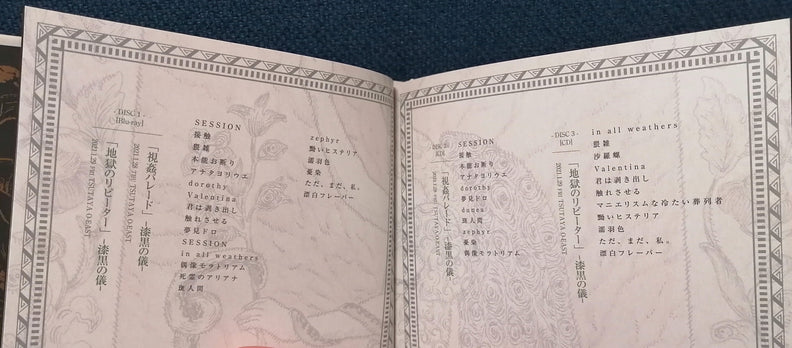 - DISC 1 -
[Blu-ray]
「視姦パレード」 -漆黒の儀-
TSUTAYA O-EAST
「地獄のリピーター」 -漆黒の儀-
TSUTAYA O-EAST
SESSION
接触
猥雑
本能お断り
アナタヨリウエ
dorothy
Valentina
君は剥き出し
触れさせる
夢見ドロ
SESSION
in all weathers
偶像モラトリアム
死霊のアリアナ
廃人間
zephyr
艶いヒステリア
濡羽色
憂染
ただ、まだ、私。
漂白フレーバー
[CD]
「視姦パレード」 -漆黒の儀-
TSUTAYA O-EAST
SESSION
接触
本能お断り
アナタヨリウエ
dorothy
夢見ドロ
廃人間
zephyr
憂染
偶像モラトリアム
- DISC 3 -
[CD]
「地獄のリピーター」 -漆黒の儀-
TSUTAYA O-EAST
in all weathers
猥雑
沙羅螺
Valentina
君は剥き出し
触れさせる
マニエリスムな冷たい葬列者
艶いヒステリア
濡羽色
ただ、まだ、私。
漂白フレーバー